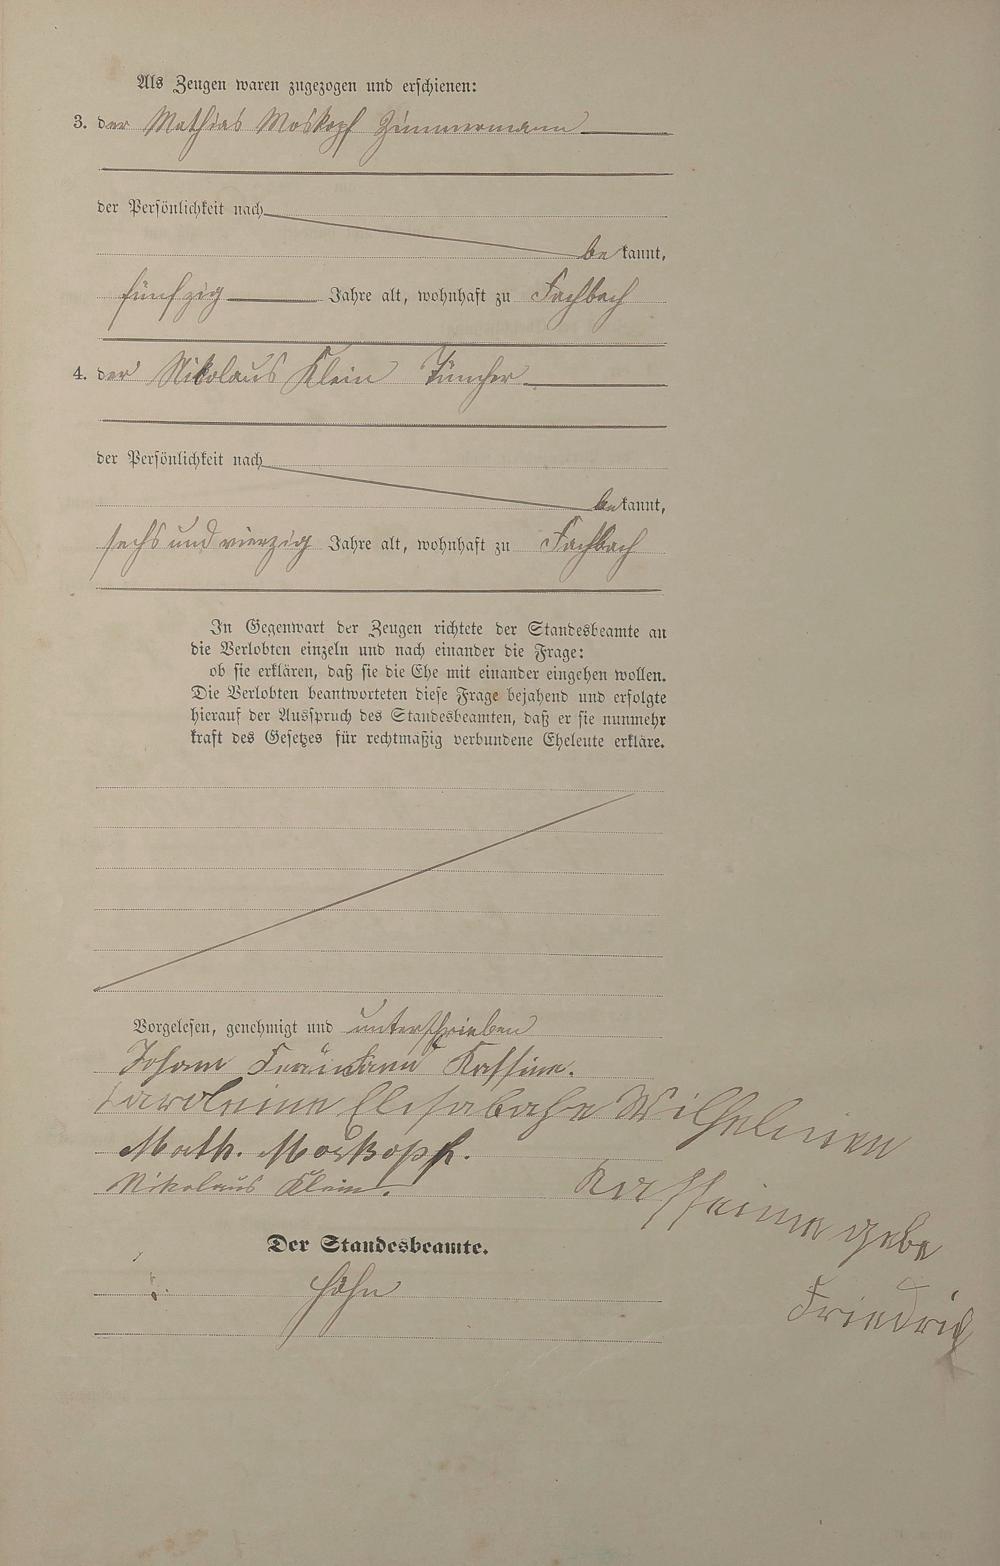 Als Zeugen waren zugezogen und erschienen:
3. der Mathias Moskopf Zimmermann
der Persönlichkeit nach
be kannt,
fünfzig Jahre alt, wohnhaft zu Fachbach
4. der Nikolaus Klein Tüncher
der Persönlichkeit nach
be kannt,
sechs und vierzig Jahre alt, wohnhaft zu Fachbach
In Gegenwart der Zeugen richtete der Standesbeamte an
die Verlobten einzeln und nach einander die Frage:
ob sie erklären, daß sie die Ehe mit einander eingehen wollen.
Die Verlobten beantworteten diese Frage bejahend und erfolgte
hierauf der Ausspruch des Standesbeamten, daß er sie nunmehr
kraft des Gesetzes für rechtmäßig verbundene Eheleute erkläre.
Vorgelesen, genehmigt und unterschrieben
Johann
Wilhelmien
Math. Moskopf.
Nikolaus Klein.
gebe
Friedrich
Der Standesbeamte.
Höhn